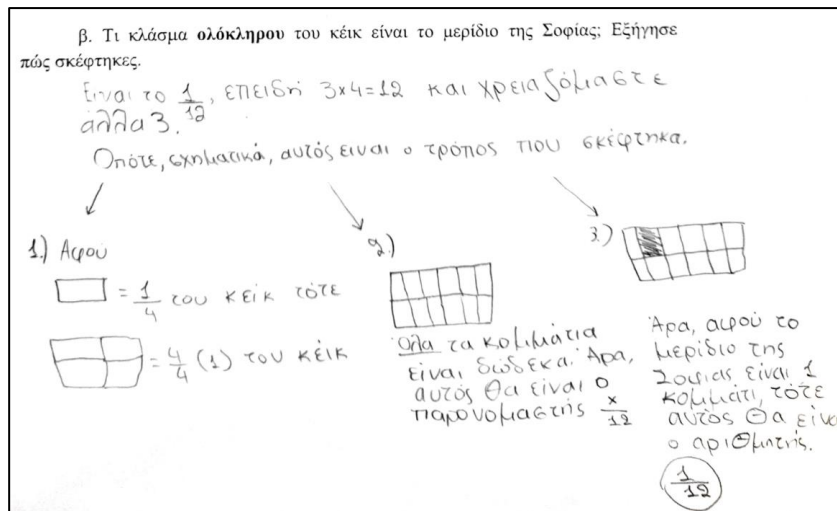 β. Τι κλάσμα ολόκληρου του κέικ είναι το μερίδιο της Σοφίας; Εξήγησε
πώς σκέφτηκες.
Ειναι το 1/12, επειδή 3x4=12 και χρειαζόμαστε
άλλα 3.
Οπότε, σχηματικά, αυτός ειναι ο τρόπος που σκέφτηκα.
1.) Αφού
= 1/4 του κέικ τότε
= 4/4 (1) του κέικ
2.)
Όλα τα κομμάτια
είναι δώδεκα. Άρα,
αυτός θα είναι ο
παρονομαστής x/12
3.)
Άρα, αφού το
μερίδιο της
Σοφιας είναι 1
κομμάτι, τότε
αυτός θα είνα
ο αριθμητής.
1/12